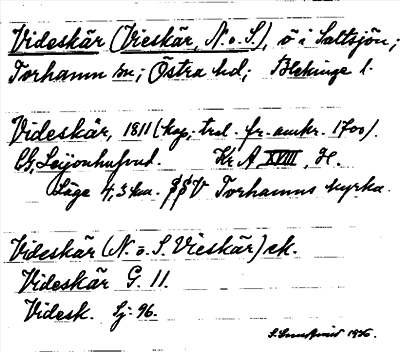 Videskär (Vieskär, N. o. S.), ö i Saltsjön;
Torhamn sn; Östra hd; Blekinge l.
Videskär, 1811 (kop. trol. fr. omkr. 1700).
Leijonhufvud. Kr. A XVIII,
Läge 4,3 km. SSV Torhamns kyrka.
Videskär (N. o. S. Vieskär) ek.
Videskär G. 11.
Videsk. Sj. 96.
1936.